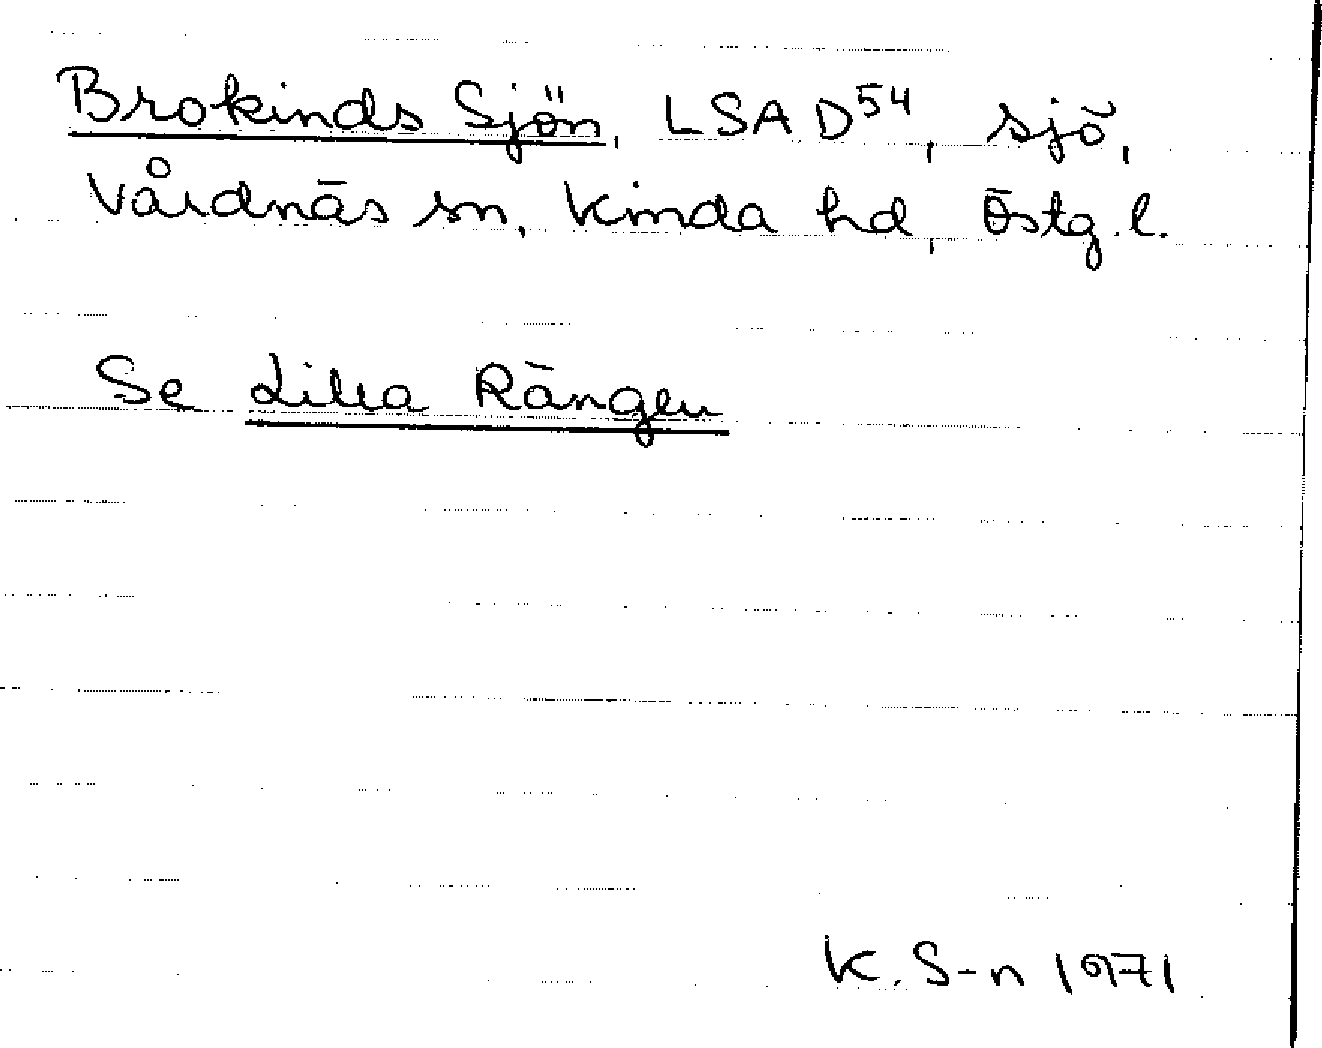 Brokinds Sjön, LSA D54, sjö,
Vårdnäs sn, Kinda hd, Östg. l.
Se Lilla Rängen
K. S-n 1971